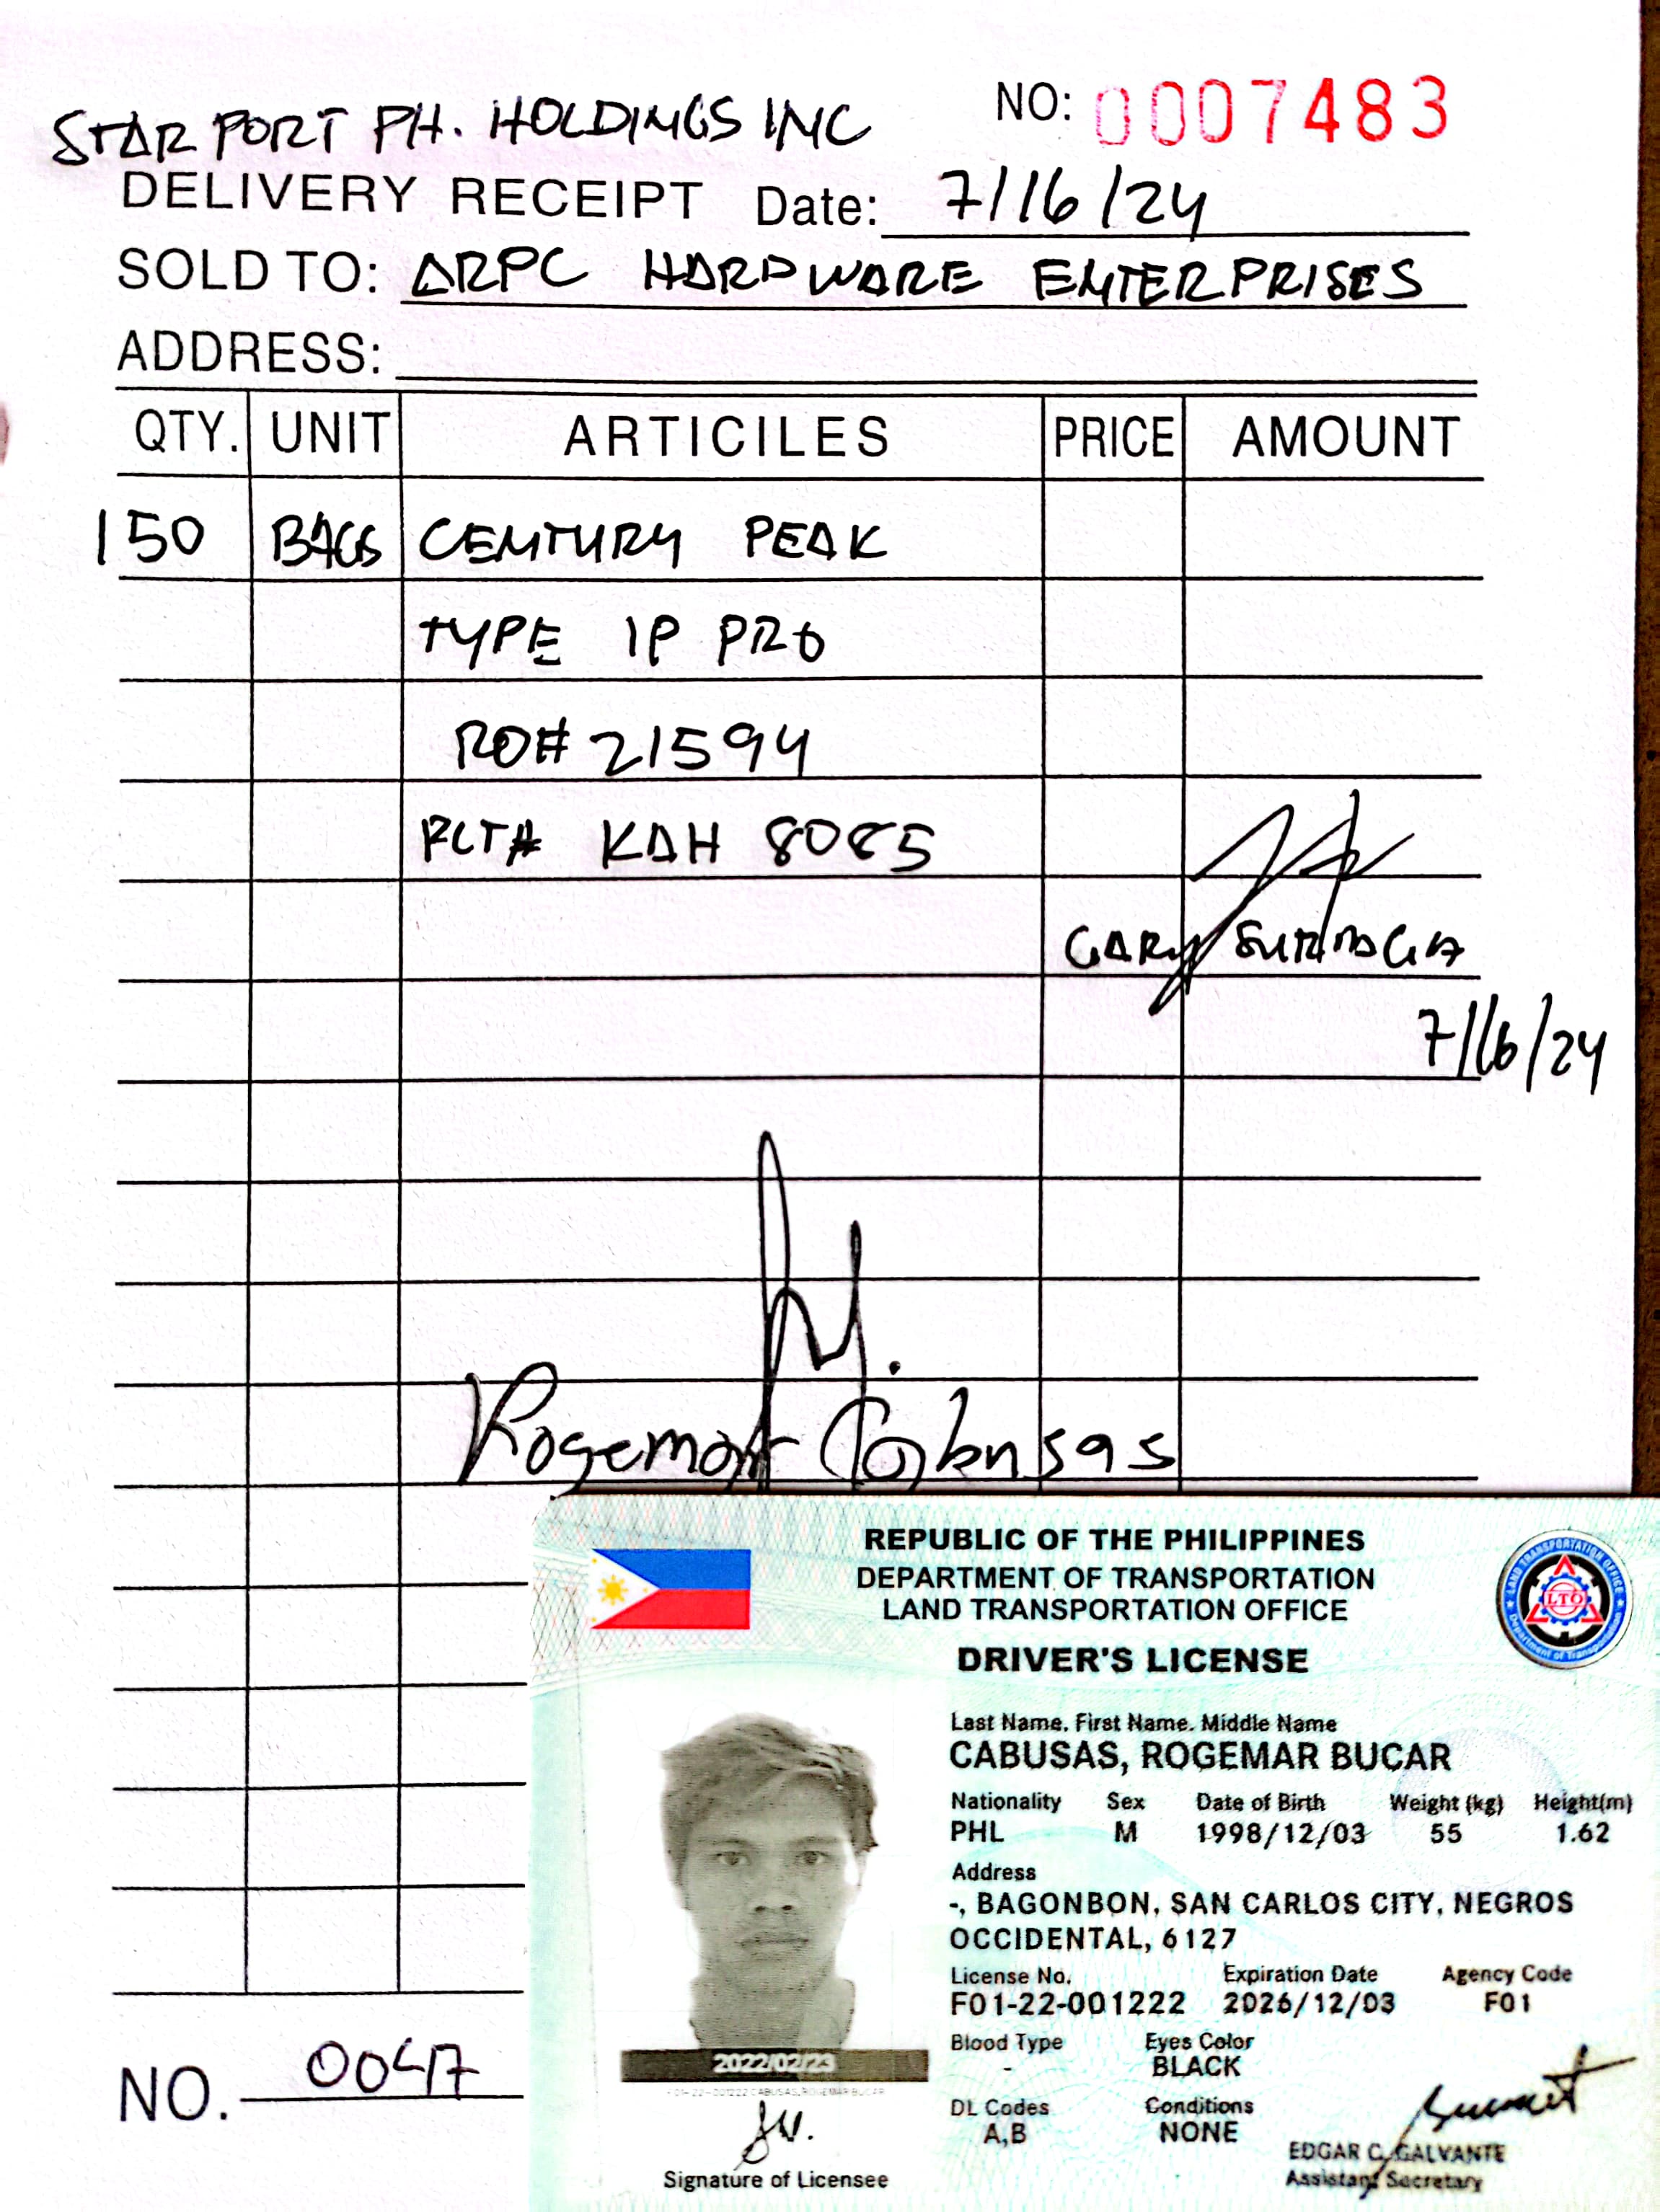 STAR PORT PH. HOLDINGS INC NO: 0007483
DELIVERY RECEIPT Date: 7/16/24
SOLD TO: ARPC HARDWARE ENTERPRISES
ADDRESS:
QTY. UNIT ARTICILES PRICE AMOUNT
150 BAGS CENTURY PEAK
TYPE 1P PRO
RO# 21594
PLT# KAH 8085
GARY
7/16/24
Rogemar Cabusas
REPUBLIC OF THE PHILIPPINES
DEPARTMENT OF TRANSPORTATION
LAND TRANSPORTATION OFFICE
LAND TRANSPORTATION OFFICE
LTO
Department of Transportation
DRIVER'S LICENSE
Last Name. First Name. Middle Name
CABUSAS, ROGEMAR BUCAR
Nationality Sex Date of Birth Weight (kg) Height(m)
PHL M 1998/12/03 55 1.62
Address
-, BAGONBON, SAN CARLOS CITY, NEGROS
OCCIDENTAL, 6127
License No. Expiration Date Agency Code
F01-22-001222 2026/12/03 F01
Blood Type Eyes Color
- BLACK
DL Codes Conditions
A,B NONE
2022/02/23
F01-22-001222 CABUSAS, ROGEMAR BUCAR
Signature of Licensee
EDGAR C. GALVANTE
Assistant Secretary
NO. 0047